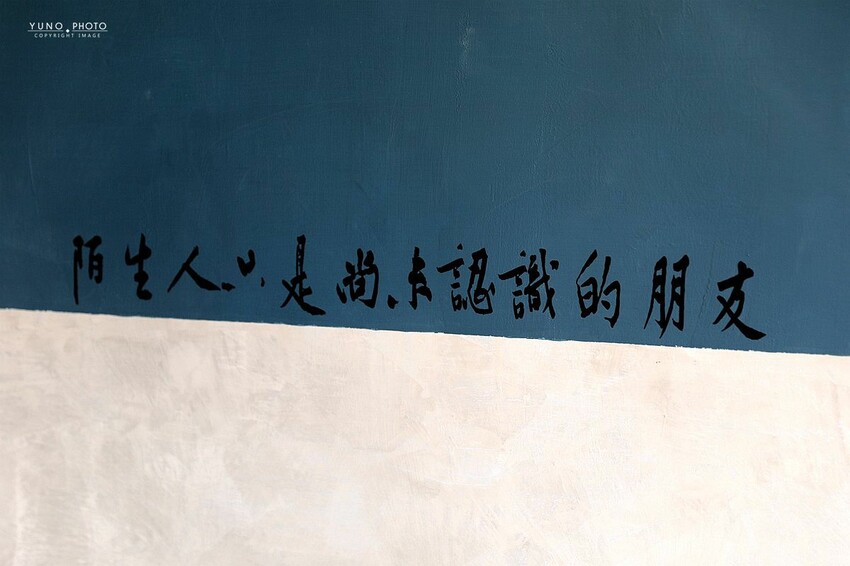 YUNO.PHOTO
COPYRIGHT IMAGE
陌生人只是尚未認識的朋友